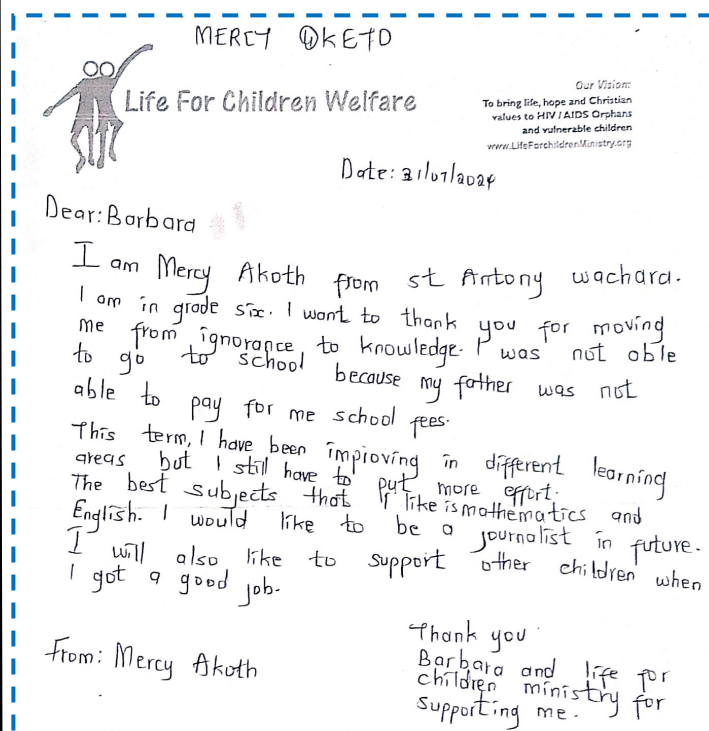 MERCY OKETO
Life For Children Welfare
Our Vision:
To bring life, hope and Christian
values to HIV / AIDS Orphans
and vulnerable children
www.LifeForchildrenMinistry.org
Date: 31/07/2024
Dear: Barbard
I am Mercy Akoth from st Antony wachara.
I am in grade six. I want to thank you for moving
me from ignorance to knowledge. I was not able
to go to school because my father was not
able to pay for me school fees.
This term, I have been improving in different learning
areas but I still have to put more effort.
The best subjects that I like is mathematics and
English. I would like to be a journalist in future.
I will also like to support other children when
I got a good job.
From: Mercy Akoth
Thank you
Barbara and life for
children ministry for
supporting me.